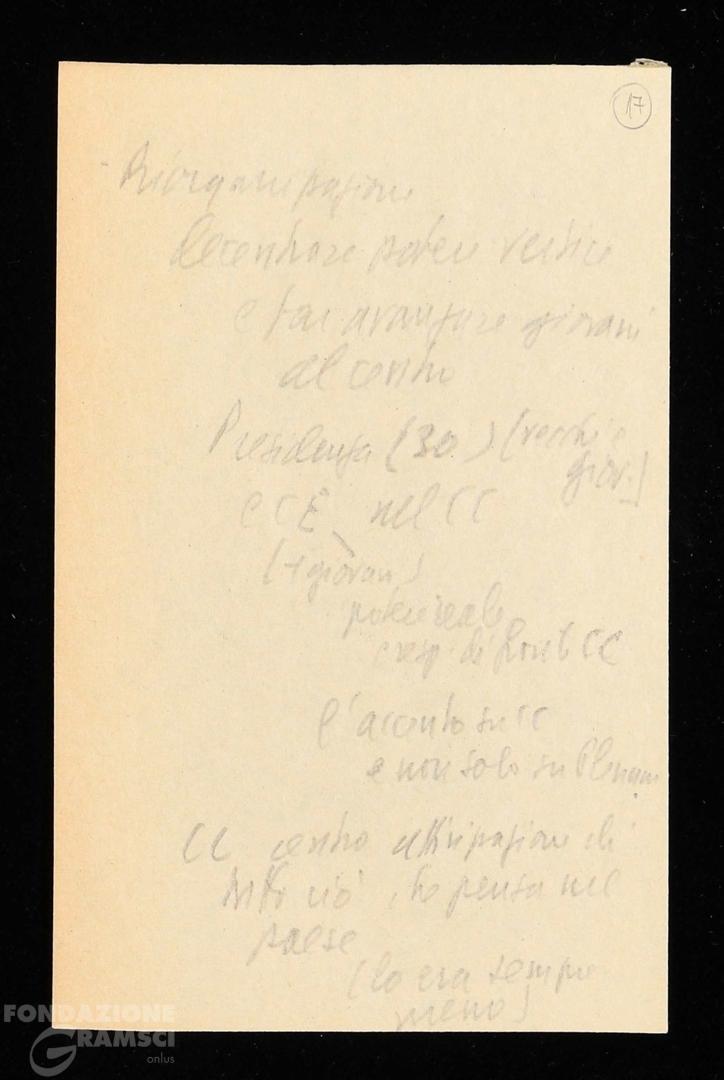 17
- Riorganizzazione
decentrare potere vertice
e far avanzare giovani
al centro
Presidenza (30) (vecchi e
giov.)
e CE nel CC
(+ giovani)
potere reale
e resp. di fronte CC
l'accento su CC
e non solo su Plenum
CC centro utilizzazione di
tutto ciò che pensa nel
paese
(lo era sempre
meno)
FONDAZIONE
GRAMSCI
onlus